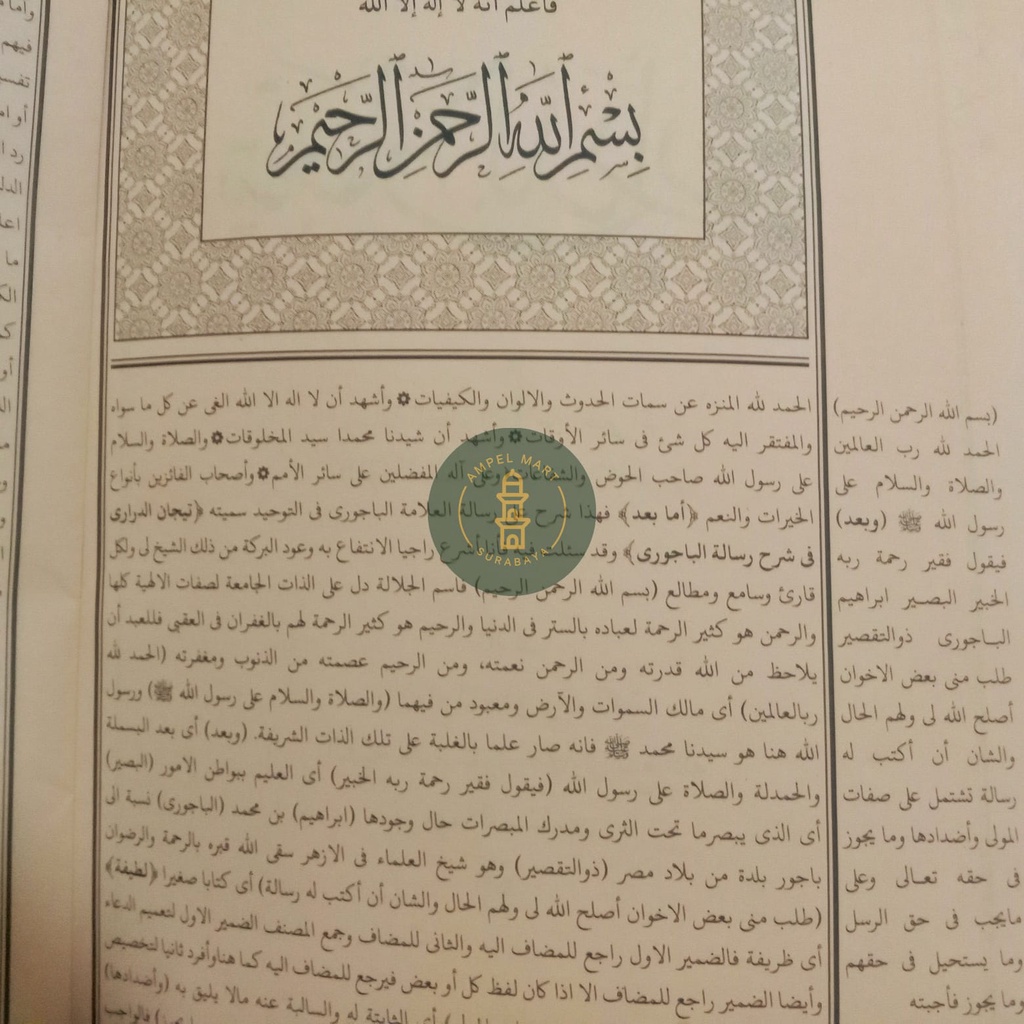 فاعلم أنه لا إله إلا الله
بِسْمِ ٱللَّهِ ٱلرَّحْمَٰنِ ٱلرَّحِيمِ
الحمد لله المنزه عن سمات الحدوث والالوان والكيفيات وأشهد أن لا اله الا الله الغى عن كل ما سواه
والمفتقر اليه كل شئ فى سائر الأوقات وأشهد أن شيدنا محمدا سيد المخلوقات والصلاة والسلام
على رسول الله صاحب الحوض والشفاعات وعلى آله المفضلين على سائر الأمم وأصحاب الفائزين بأنواع
الخيرات والنعم (أما بعد) فهذا شرح على رسالة العلامة الباجورى فى التوحيد سميته (تيجان الدرارى
فى شرح رسالة الباجورى) وقد سئلت فيه فأنا أشرع راجيا الانتفاع به وعود البركة من ذلك الشيخ لى ولكل
قارئ وسامع ومطالع (بسم الله الرحمن الرحيم) فاسم الجلالة دل على الذات الجامعة لصفات الالهية كلها
والرحمن هو كثير الرحمة لعباده بالستر فى الدنيا والرحيم هو كثير الرحمة لهم بالغفران فى العقبى فللعبد أن
يلاحظ من الله قدرته ومن الرحمن نعمته، ومن الرحيم عصمته من الذنوب ومغفرته (الحمد لله
ربالعالمين) أى مالك السموات والأرض ومعبود من فيهما (والصلاة والسلام على رسول الله ﷺ) ورسول
الله هنا هو سيدنا محمد ﷺ فانه صار علما بالغلبة على تلك الذات الشريفة. (وبعد) أى بعد البسملة
والحمدلة والصلاة على رسول الله (فيقول فقير رحمة ربه الخبير) أى العليم ببواطن الامور (البصير)
أى الذى يبصرما تحت الثرى ومدرك المبصرات حال وجودها (ابراهيم) بن محمد (الباجورى) نسبة الى
باجور بلدة من بلاد مصر (ذوالتقصير) وهو شيخ العلماء فى الازهر سقى الله قبره بالرحمة والرضوان
(طلب منى بعض الاخوان أصلح الله لى ولهم الحال والشان أن أكتب له رسالة) أى كتابا صغيرا (لطيفة)
أى ظريفة فالضمير الاول راجع للمضاف اليه والثانى للمضاف وجمع المصنف الضمير الاول لتعميم الدعاء
وأيضا الضمير راجع للمضاف الا اذا كان لفظ كل أو بعض فيرجع للمضاف اليه كما هناوأفرد ثانيا لتخصيص
أى الثابتة له والسالبة عنه مالا يليق به (وأضدادها)
فالواجب
(بسم الله الرحمن الرحيم)
الحمد لله رب العالمين
والصلاة والسلام على
رسول الله ﷺ (وبعد)
فيقول فقير رحمة ربه
الخبير البصير ابراهيم
الباجورى ذوالتقصير
طلب منى بعض الاخوان
أصلح الله لى ولهم الحال
والشان أن أكتب له
رسالة تشتمل على صفات
المولى وأضدادها وما يجوز
فى حقه تعالى وعلى
مايجب فى حق الرسل
وما يستحيل فى حقهم
وما يجوز فأجبته
وأما
فيهم
أو
اعا
ما
AMPEL MART
SURABAYA